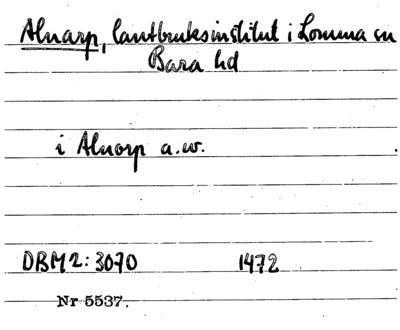 Alnarp, lantbruksinstitut i Lomma sn
Bara hd
i Alnorp a.w.
DBM2:3070 1472
Nr 5537.